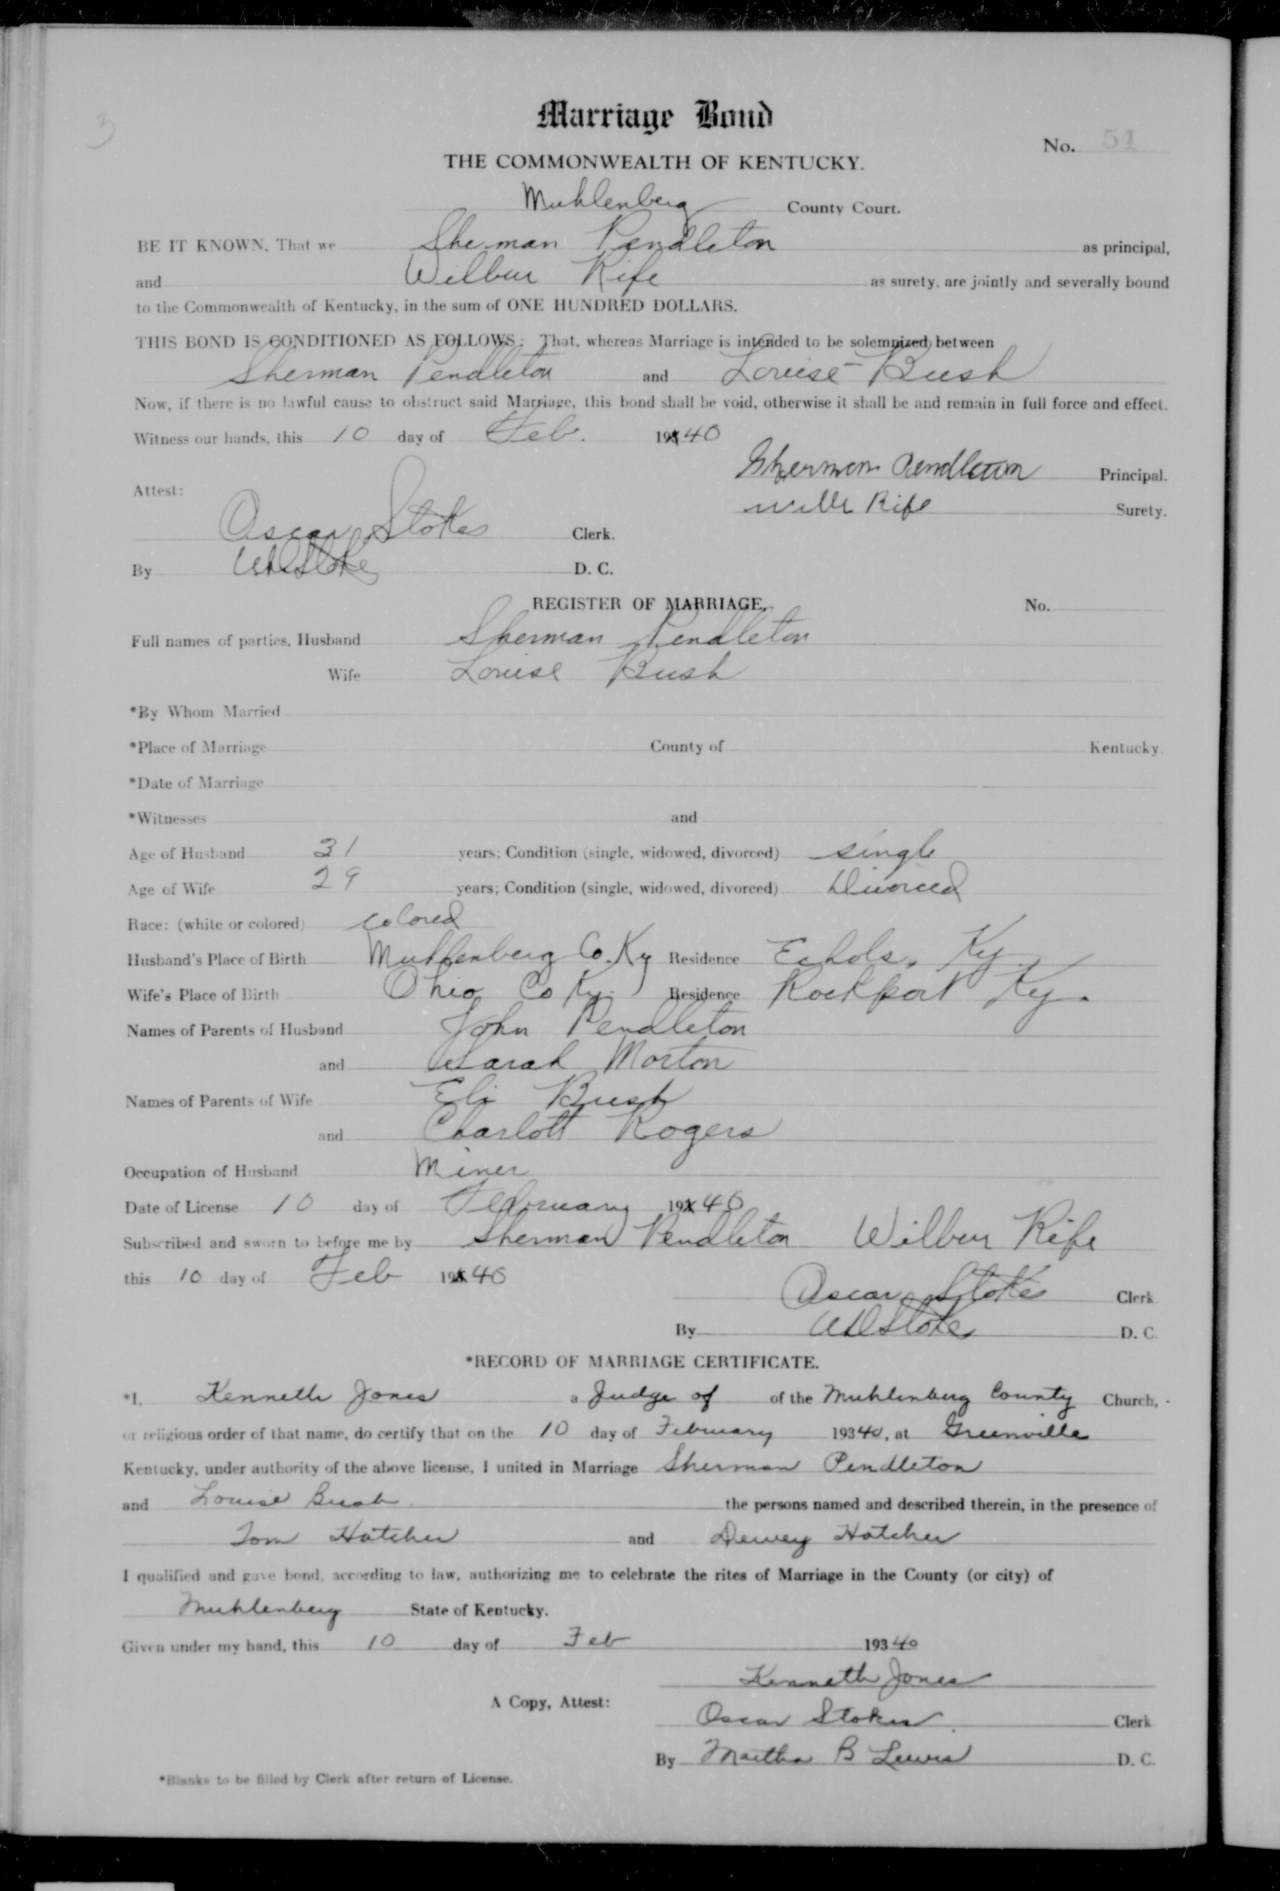 3
Marriage Bond
No. 51
THE COMMONWEALTH OF KENTUCKY.
Muhlenberg County Court.
BE IT KNOWN, That we Sherman Pendleton as principal,
and Wilbur Rife as surety, are jointly and severally bound
to the Commonwealth of Kentucky, in the sum of ONE HUNDRED DOLLARS.
THIS BOND IS CONDITIONED AS FOLLOWS: That, whereas Marriage is intended to be solemnized between
Sherman Pendleton and Louise Bush
Now, if there is no lawful cause to obstruct said Marriage, this bond shall be void, otherwise it shall be and remain in full force and effect.
Witness our hands, this 10 day of Feb. 1940
Sherman Pendleton Principal.
Attest:
Rife Surety.
Oscar Stokes Clerk.
By WDStokes D. C.
REGISTER OF MARRIAGE. No.
Full names of parties, Husband Sherman Pendleton
Wife Louise Bush
*By Whom Married
*Place of Marriage County of Kentucky.
*Date of Marriage
*Witnesses and
Age of Husband 31 years; Condition (single, widowed, divorced) single
Age of Wife 29 years; Condition (single, widowed, divorced) Divorced
Race: (white or colored) colored
Husband's Place of Birth Muhlenberg Co. Ky Residence Echols, Ky.
Wife's Place of Birth Ohio Co Ky. Residence Rockport Ky.
Names of Parents of Husband John Pendleton
and Sarah Morton
Names of Parents of Wife Eli Bush
and Charlott Rogers
Occupation of Husband Miner
Date of License 10 day of February 1940
Subscribed and sworn to before me by Sherman Pendleton Wilbur Rife
this 10 day of Feb 1940
Oscar Stokes Clerk
By WDStokes D. C.
*RECORD OF MARRIAGE CERTIFICATE.
*I, Kenneth Jones a Judge of of the Muhlenberg County Church,
or religious order of that name, do certify that on the 10 day of February 19340, at Greenville
Kentucky, under authority of the above license, I united in Marriage Sherman Pendleton
and Louise Bush the persons named and described therein, in the presence of
Tom Hatcher and Dewey Hatcher
I qualified and gave bond, according to law, authorizing me to celebrate the rites of Marriage in the County (or city) of
Muhlenberg State of Kentucky.
Given under my hand, this 10 day of Feb 19340
Kenneth Jones
A Copy, Attest:
Oscar Stokes Clerk
By Martha B Lewis D. C.
*Blanks to be filled by Clerk after return of License.